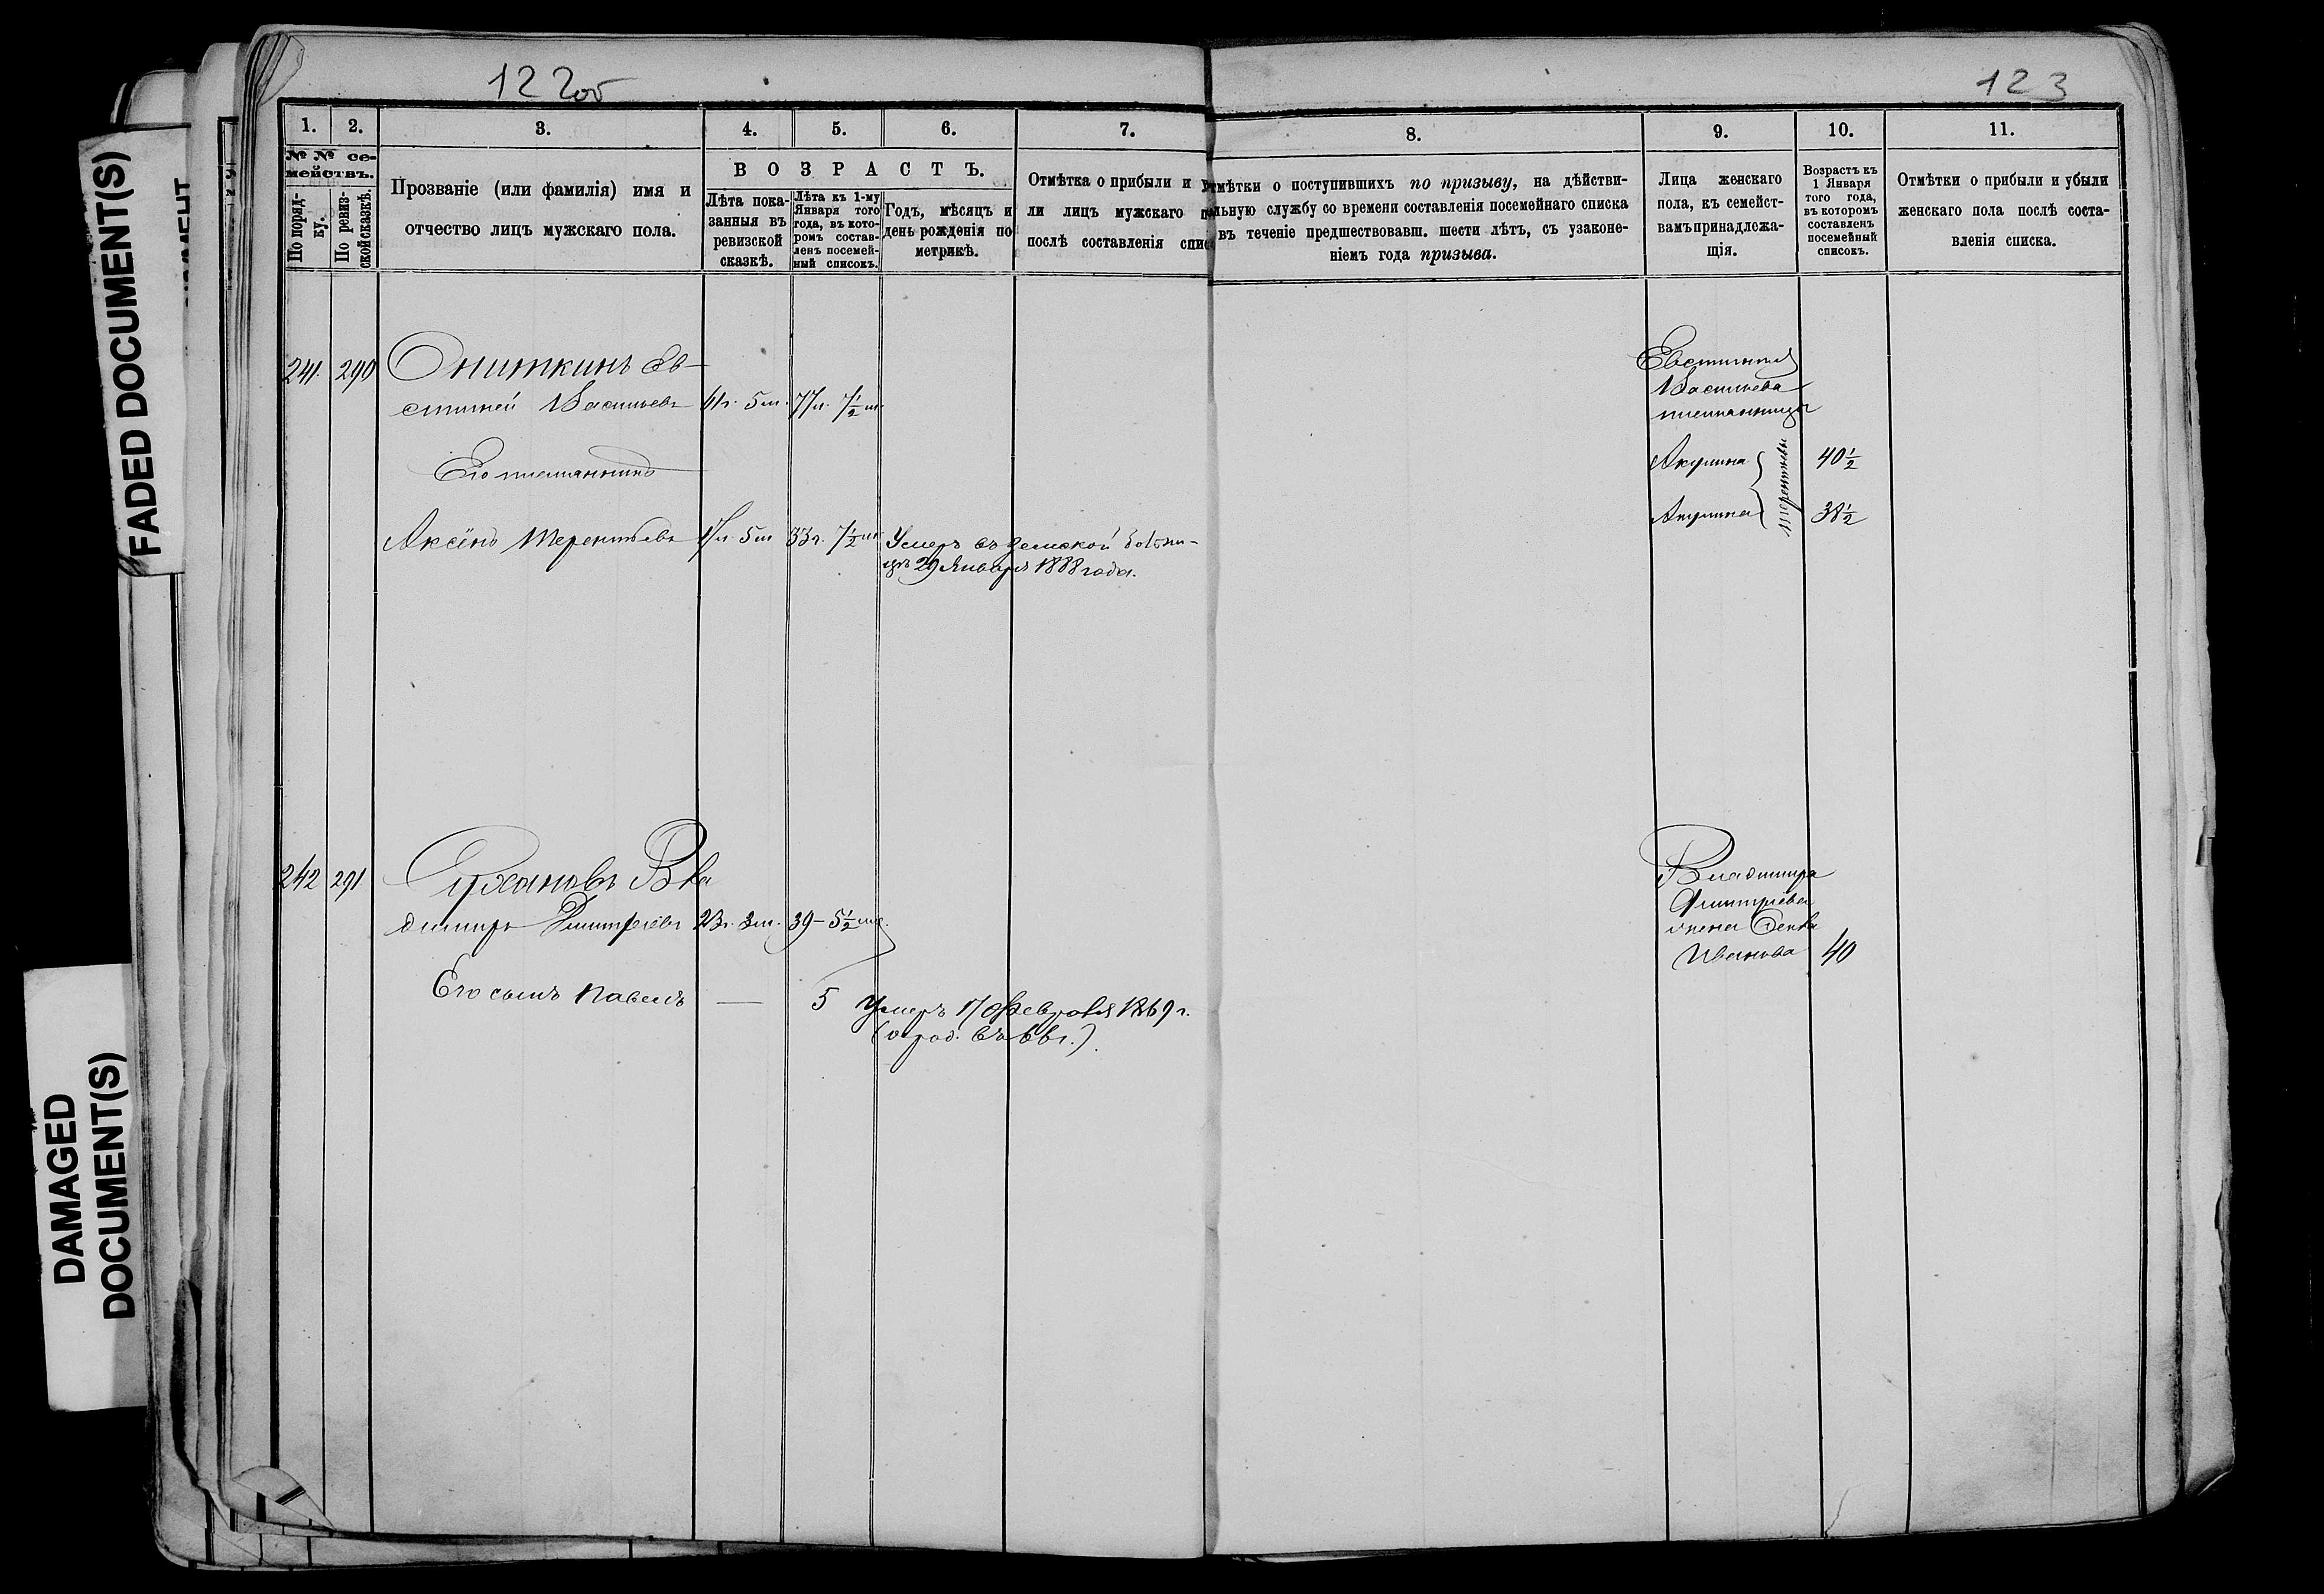 FADED DOCUMENT(S)
DAMAGED
DOCUMENT(S)
122об
123
1. 2. 3. 4. 5. 6. 7. 8. 9. 10. 11.
№ № се-
мействъ.
По поряд-
ку.
По ревиз-
ской сказкѣ.
Прозваніе (или фамилія) имя и
отчество лицъ мужскаго пола.
ВОЗРАСТЪ.
Лѣта пока-
занныя въ
ревизской
сказкѣ.
Лѣта къ 1-му
Января того
года, въ кото-
ромъ состав-
ленъ посемей-
ный списокъ.
Годъ, мѣсяцъ и
день рожденія по
метрикѣ.
Отмѣтка о прибыли и у
ли лицъ мужскаго п
послѣ составленія спис
тмѣтки о поступившихъ по призыву, на дѣйстви-
льную службу со времени составленія посемейнаго списка
въ теченіе предшествовавш. шести лѣтъ, съ узаконе-
ніемъ года призыва.
Лица женскаго
пола, къ семейст-
вамъ принадлежа-
щія.
Возрастъ къ
1 Января
того года,
въ которомъ
составленъ
посемейный
списокъ.
Отмѣтки о прибыли и убыли
женскаго пола послѣ соста-
вленія списка.
241. 290 Ониткинъ Ев-
стигней Васильевъ 61г. 5м. 77л. 7½ м.
Его племянникъ
Аксёнъ Терентьевъ 17л. 5м 33г. 7½ м Умеръ въ земской больни-
цѣ 29 Января 1888 года.
Васильева
племянницы
Акулина 40½
Акулина 38½
Терентьевы
242 291 Вла
димиръ Дмитріевъ 23г. 3м. 39-5½ мѣ.
Его сынъ Павелъ — 5 Умеръ 17 Февраля 1869г.
(о род. въ
Владимира
Дмитріева
жена
Иванова 40